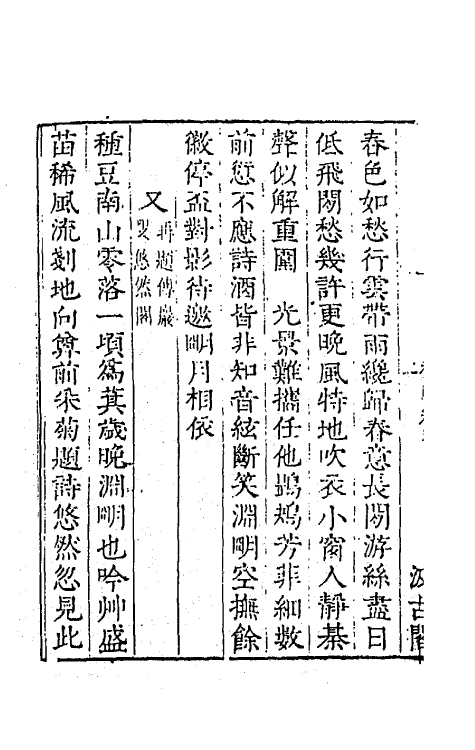 春色如愁行雲帶雨纔歸春意長閑游絲盡日
低飛閑愁幾許更晚風特地吹衣小窗人靜棊
聲似解重圍　光景難攜任他鶗鴂芳菲細數
前愆不應詩酒皆非知音絃斷笑淵明空撫餘
徽停盃對影待邀明月相依
又再題傅巖
叟悠然閣
種豆南山零落一頃爲萁歲晚淵明也吟艸盛
苗稀風流剗地向尊前采菊題詩悠然忽見此
汲古閣